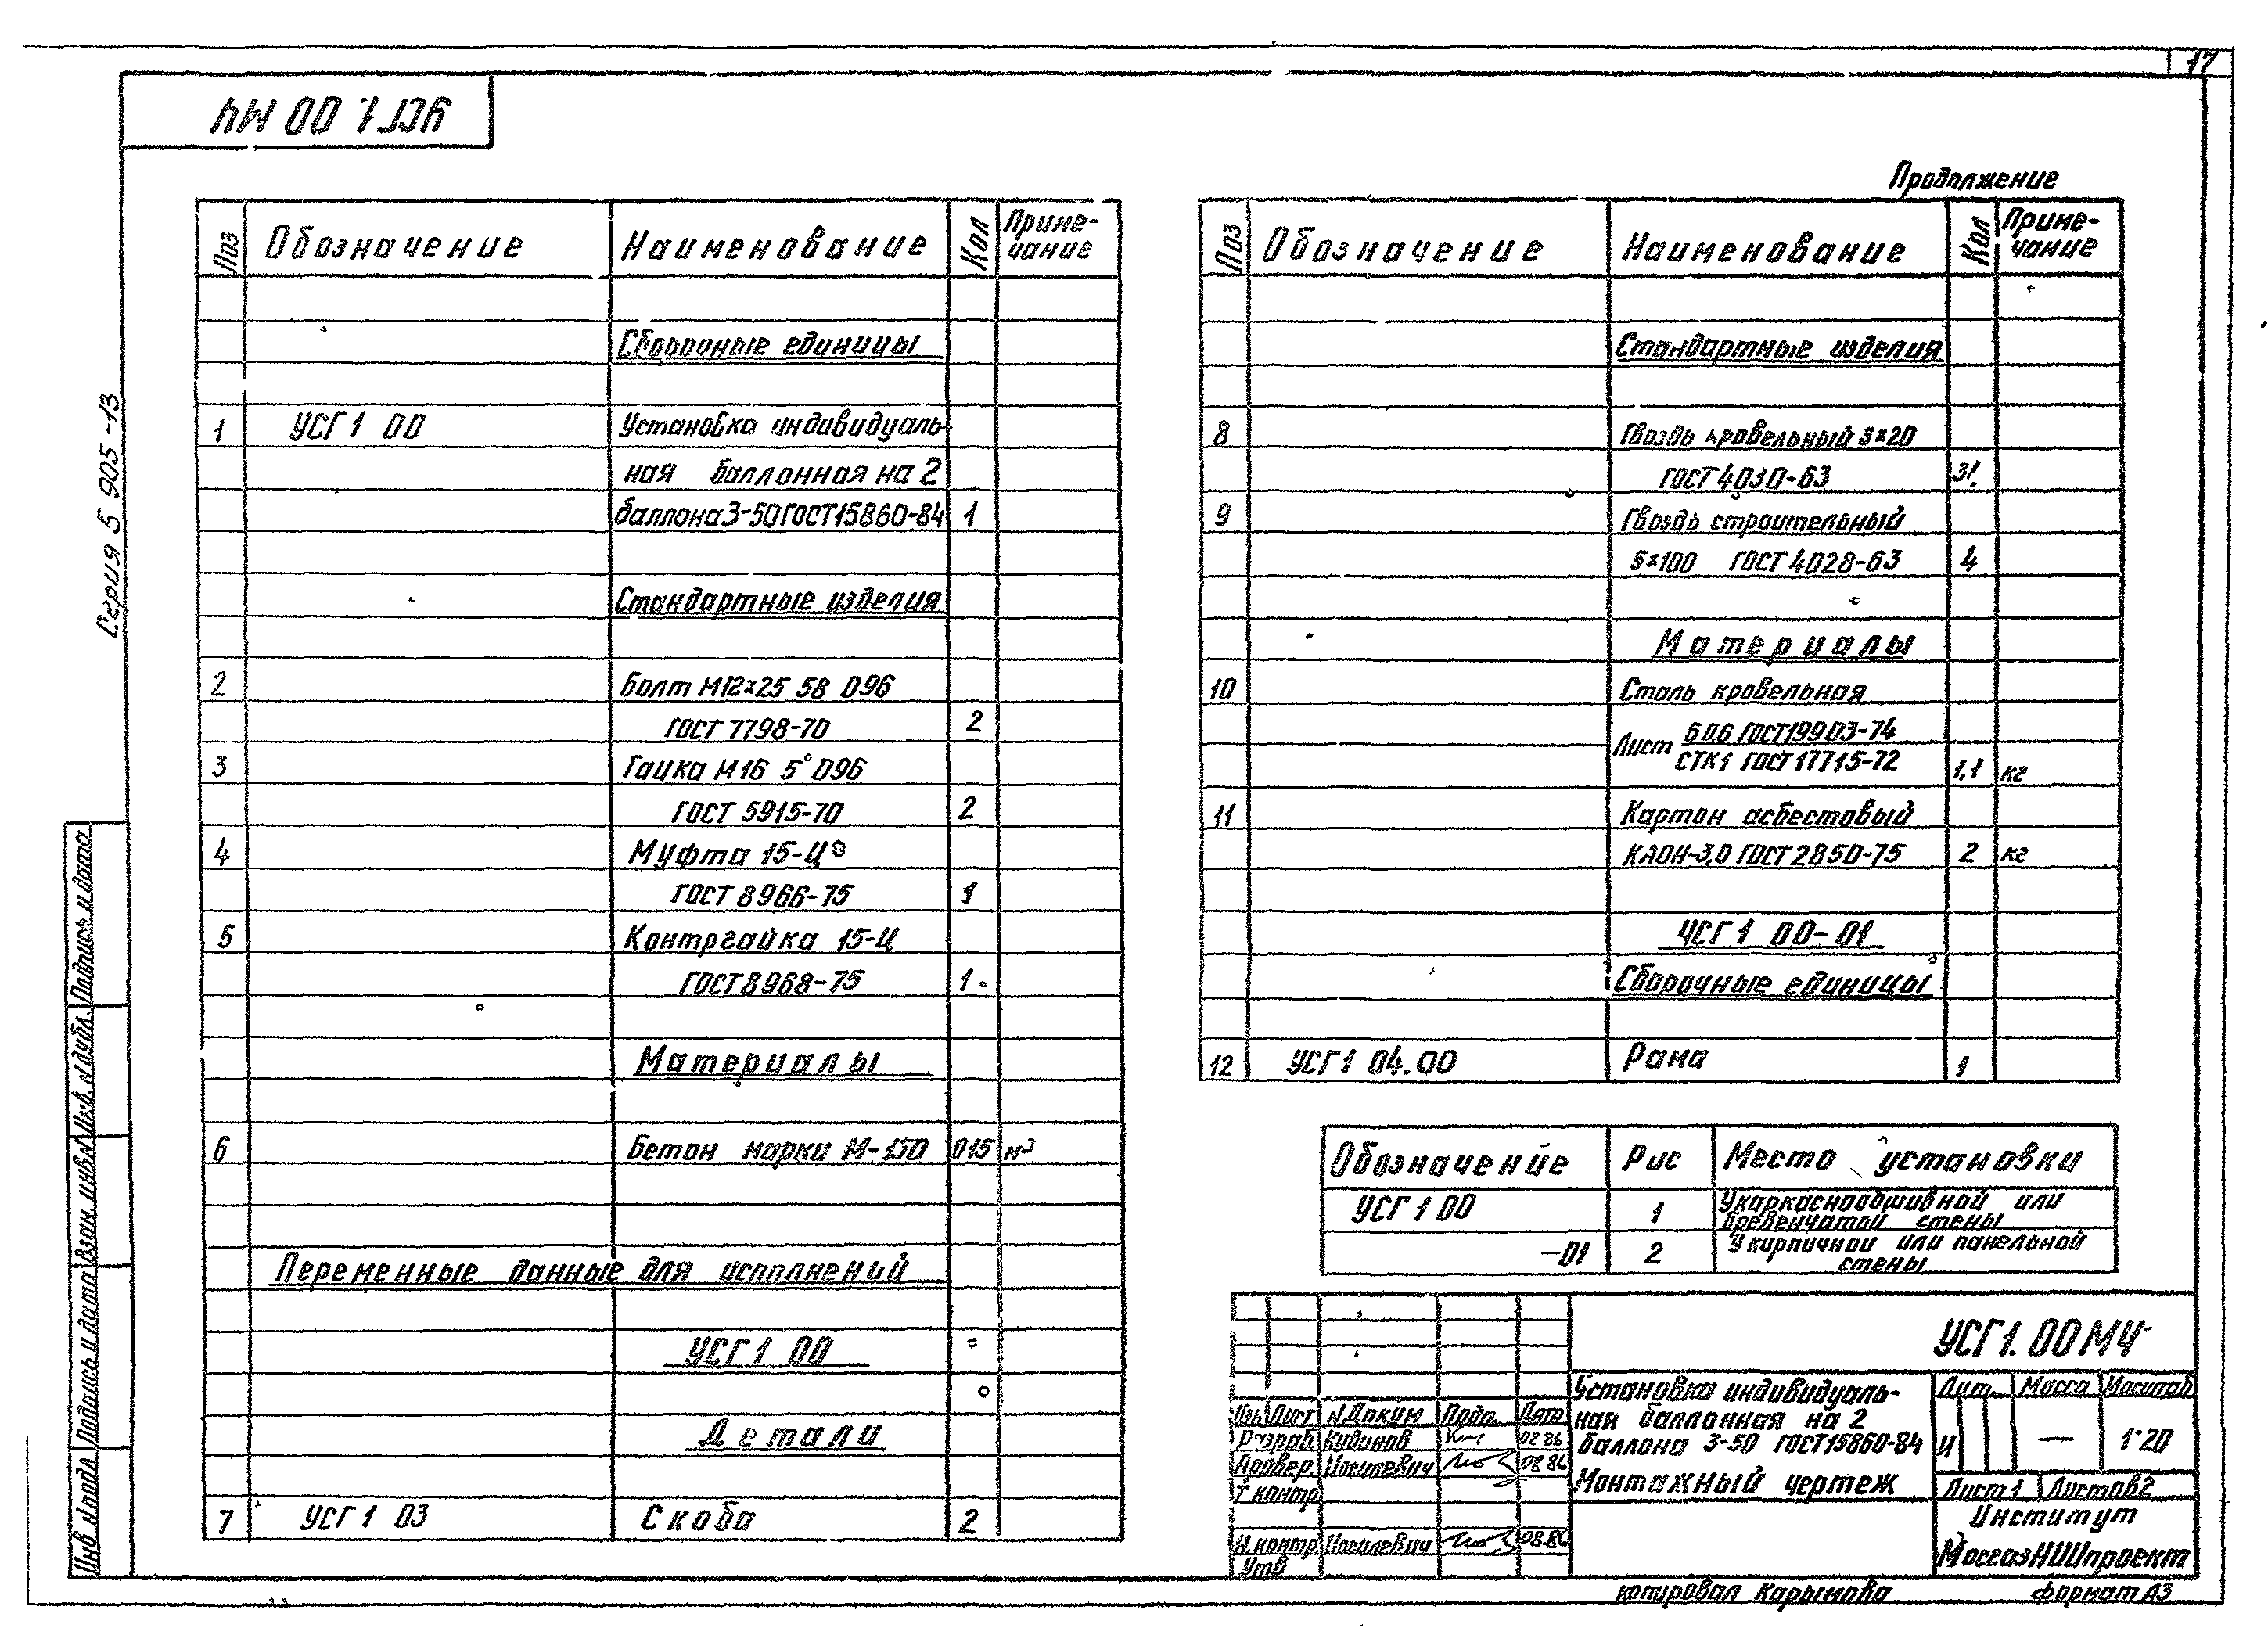 17
УСГ 1.00 МЧ
Серия 5 905-13
Поз Обозначение Наименование Кол Приме-
чание
Сборочные единицы
1 УСГ 1 00 Установка индивидуаль-
ная баллонная на 2
баллона 3-50 ГОСТ 15860-84 1
Стандартные изделия
2 Болт М12×25 58 096
ГОСТ 7798-70 2
3 Гайка М16 5 096
ГОСТ 5915-70 2
4 Муфта 15-Ц
ГОСТ 8966-75 1
5 Контргайка 15-Ц
ГОСТ 8968-75 1
Материалы
6 Бетон марки М-150 015 м³
Переменные данные для исполнений
УСГ 1 00
Детали
7 УСГ 1 03 Скоба 2
Продолжение
Поз Обозначение Наименование Кол Приме-
чание
Стандартные изделия
8 Гвоздь кровельный 3×20
ГОСТ 4030-63
9 Гвоздь строительный
5×100 ГОСТ 4028-63 4
Материалы
10 Сталь кровельная
Лист Б 0.6 ГОСТ 19903-74
СТК1 ГОСТ 17715-72 1,1 кг
11 Картон асбестовый
КАОН-3,0 ГОСТ 2850-75 2 кг
УСГ 1 00-01
Сборочные единицы
12 УСГ 1 04.00 Рама 1
Обозначение Рис Место установки
УСГ 1 00 1 У каркаснообшивной или
бревенчатой стены
-01 2 У кирпичной или панельной
стены
УСГ 1.00 МЧ
Установка индивидуаль-
ная баллонная на 2
баллона 3-50 ГОСТ 15860-84
Монтажный чертеж
Лит. Масса Масштаб
И — 1:20
Лист 1 Листов 2
Институт
МосгазНИИпроект
Изм Лист N Докум Подп. Дата
Разраб. 02 86
Провер. 08 86
Т контр
Н.контр 08.86
Утв
Инв N подл Подпись и дата Взам. инв N Инв. N дубл. Подпись и дата
копировал Карымова формат А3